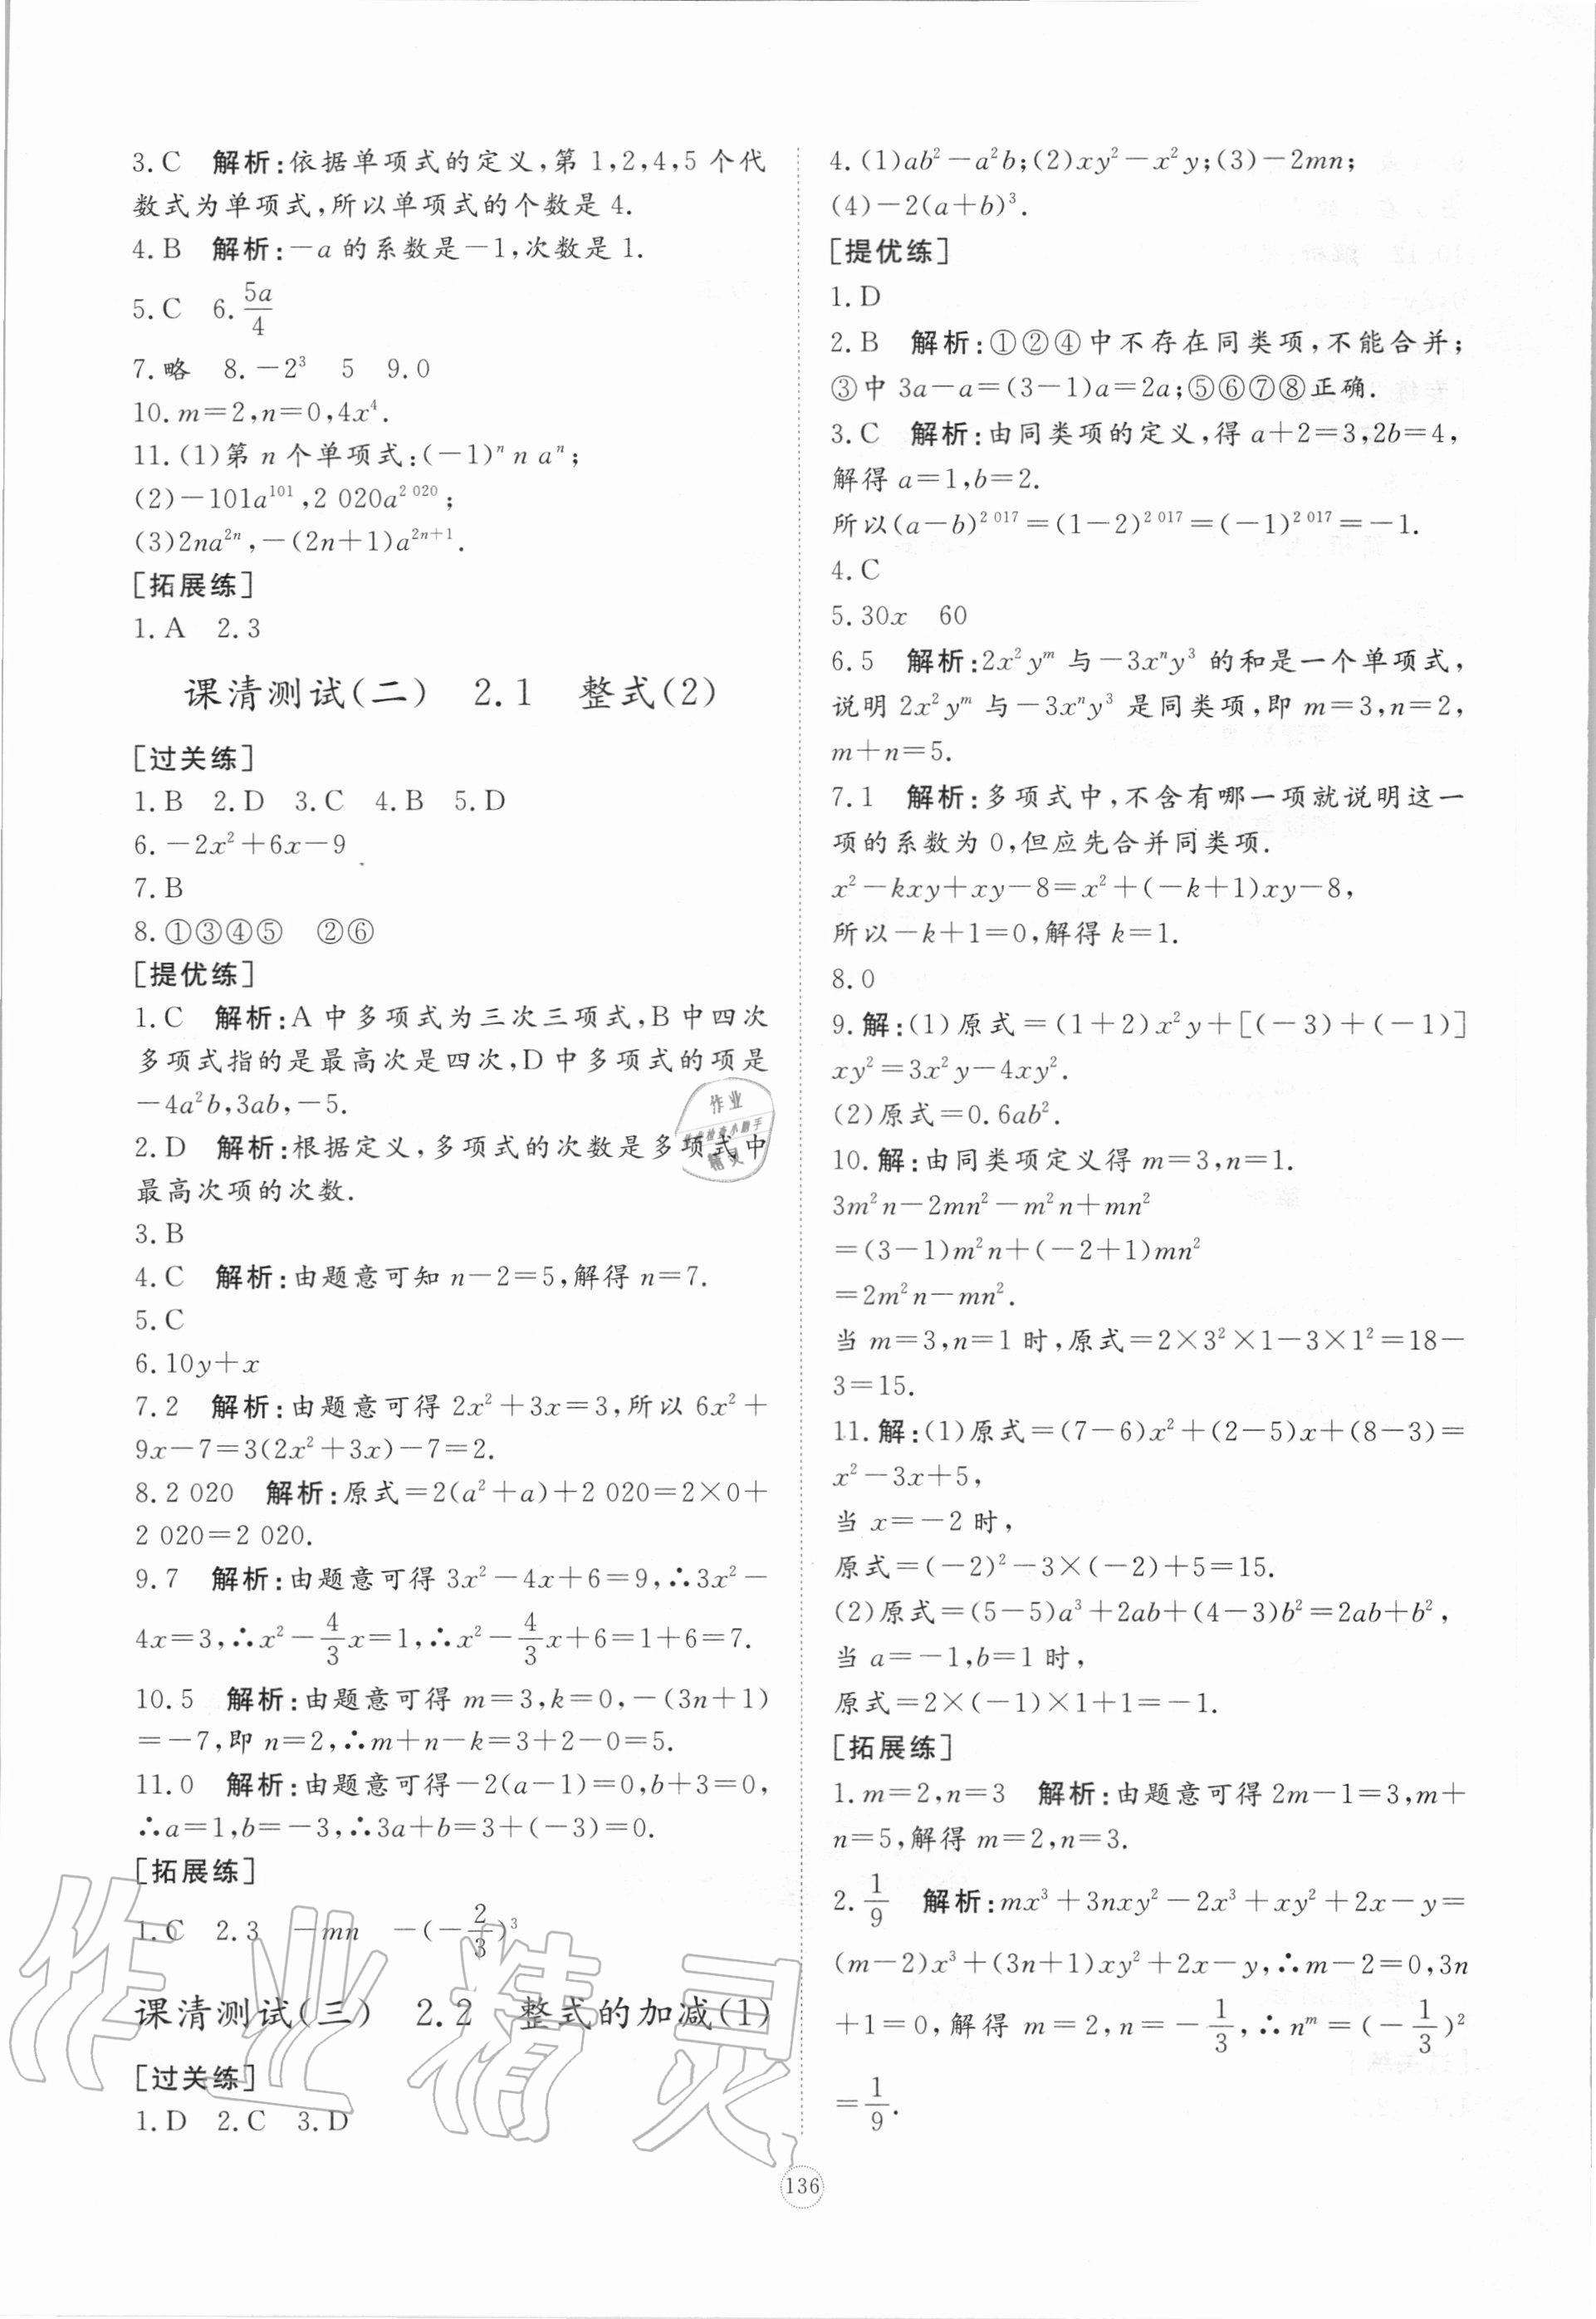 3.C 解析:依据单项式的定义,第 1,2,4,5 个代
数式为单项式,所以单项式的个数是 4.
4.B 解析:−a 的系数是−1,次数是 1.
5.C 6.5a/4
7.略 8.−2³ 5 9.0
10.m=2,n=0,4x⁴.
11.(1)第 n 个单项式:(−1)ⁿ n aⁿ;
(2)−101a¹⁰¹,2 020a² ⁰²⁰;
(3)2na²ⁿ,−(2n+1)a²ⁿ⁺¹.
[拓展练]
1.A 2.3
课清测试(二) 2.1 整式(2)
[过关练]
1.B 2.D 3.C 4.B 5.D
6.−2x²+6x−9
7.B
8.①③④⑤ ②⑥
[提优练]
1.C 解析:A 中多项式为三次三项式,B 中四次
多项式指的是最高次是四次,D 中多项式的项是
−4a²b,3ab,−5.
2.D 解析:根据定义,多项式的次数是多项式中
最高次项的次数.
3.B
4.C 解析:由题意可知 n−2=5,解得 n=7.
5.C
6.10y+x
7.2 解析:由题意可得 2x²+3x=3,所以 6x²+
9x−7=3(2x²+3x)−7=2.
8.2 020 解析:原式=2(a²+a)+2 020=2×0+
2 020=2 020.
9.7 解析:由题意可得 3x²−4x+6=9,∴3x²−
4x=3,∴x²−4/3x=1,∴x²−4/3x+6=1+6=7.
10.5 解析:由题意可得 m=3,k=0,−(3n+1)
=−7,即 n=2,∴m+n−k=3+2−0=5.
11.0 解析:由题意可得−2(a−1)=0,b+3=0,
∴a=1,b=−3,∴3a+b=3+(−3)=0.
[拓展练]
1.C 2.3 −mn −(−2/3)³
课清测试(三) 2.2 整式的加减(1)
[过关练]
1.D 2.C 3.D
4.(1)ab²−a²b;(2)xy²−x²y;(3)−2mn;
(4)−2(a+b)³.
[提优练]
1.D
2.B 解析:①②④中不存在同类项,不能合并;
③中 3a−a=(3−1)a=2a;⑤⑥⑦⑧正确.
3.C 解析:由同类项的定义,得 a+2=3,2b=4,
解得 a=1,b=2.
所以(a−b)² ⁰¹⁷=(1−2)² ⁰¹⁷=(−1)² ⁰¹⁷=−1.
4.C
5.30x 60
6.5 解析:2x²yᵐ 与−3xⁿy³ 的和是一个单项式,
说明 2x²yᵐ 与−3xⁿy³ 是同类项,即 m=3,n=2,
m+n=5.
7.1 解析:多项式中,不含有哪一项就说明这一
项的系数为 0,但应先合并同类项.
x²−kxy+xy−8=x²+(−k+1)xy−8,
所以−k+1=0,解得 k=1.
8.0
9.解:(1)原式=(1+2)x²y+[(−3)+(−1)]
xy²=3x²y−4xy².
(2)原式=0.6ab².
10.解:由同类项定义得 m=3,n=1.
3m²n−2mn²−m²n+mn²
=(3−1)m²n+(−2+1)mn²
=2m²n−mn².
当 m=3,n=1 时,原式=2×3²×1−3×1²=18−
3=15.
11.解:(1)原式=(7−6)x²+(2−5)x+(8−3)=
x²−3x+5,
当 x=−2 时,
原式=(−2)²−3×(−2)+5=15.
(2)原式=(5−5)a³+2ab+(4−3)b²=2ab+b²,
当 a=−1,b=1 时,
原式=2×(−1)×1+1=−1.
[拓展练]
1.m=2,n=3 解析:由题意可得 2m−1=3,m+
n=5,解得 m=2,n=3.
2.1/9 解析:mx³+3nxy²−2x³+xy²+2x−y=
(m−2)x³+(3n+1)xy²+2x−y,∴m−2=0,3n
+1=0,解得 m=2,n=−1/3,∴nᵐ=(−1/3)²
=1/9.
136
作业精灵
作业
检查小助手
精灵